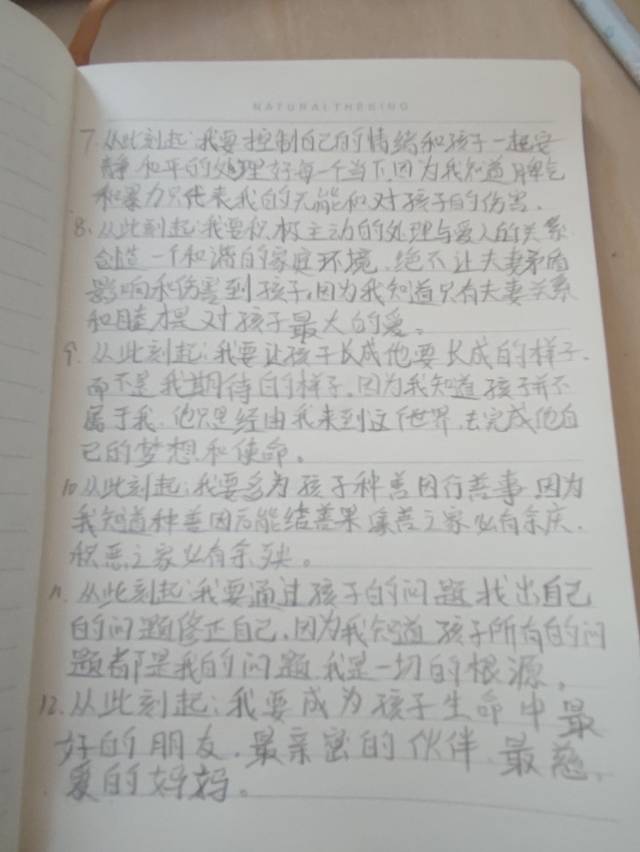 NATURALTHEKING
7.从此刻起:我要控制自己的情绪和孩子一起安
静、和平的处理好每一个当下,因为我知道脾气
和暴力只代表我的无能和对孩子的伤害.
8.从此刻起:我要积极主动的处理与爱人的关系
创造一个和谐的家庭环境,绝不让夫妻矛盾
影响和伤害到孩子,因为我知道只有夫妻关系
和睦才是对孩子最大的爱。
9.从此刻起:我要让孩子长成他要长成的样子,
而不是我期待的样子,因为我知道孩子并不
属于我,他只是经由我来到这个世界,去完成他自
己的梦想和使命。
10.从此刻起:我要多为孩子种善因行善事,因为
我知道种善因后能结善果,积善之家必有余庆,
积恶之家必有余殃。
11.从此刻起:我要通过孩子的问题找出自己
的问题修正自己,因为我知道孩子所有的问
题都是我的问题,我是一切的根源。
12.从此刻起:我要成为孩子生命中最
好的朋友,最亲密的伙伴,最慈
爱的妈妈。